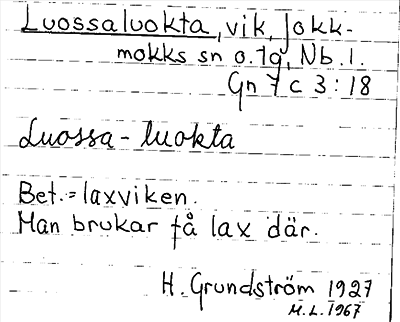 Luossaluokta, vik, Jokk-
mokks sn o. tg, Nb. l.
Gn 7 c 3:18
Luossa-luokta
Bet. = laxviken.
Man brukar få lax där.
H. Grundström 1927
M.L. 1967